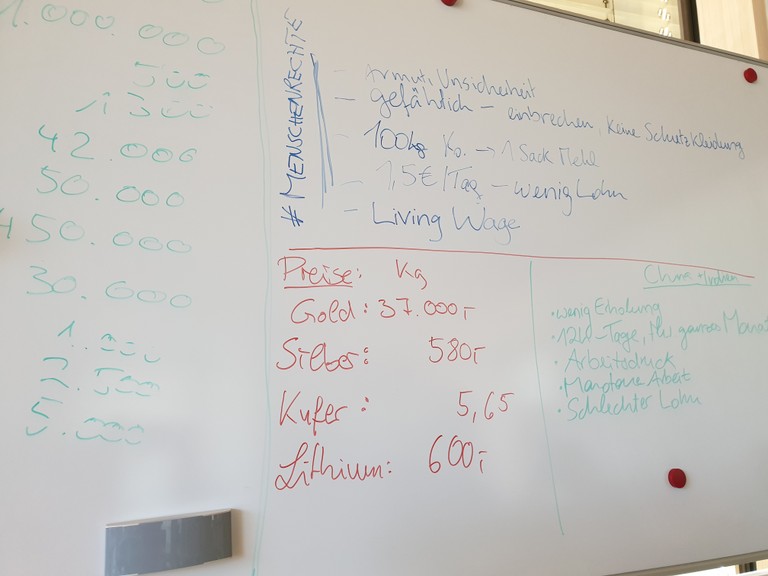 1.000.000
500
1300
42.000
50.000
450.000
30.000
1.000
2.500
5.000
#MENSCHENRECHTE
- Armut, Unsicherheit
- gefährlich - einbrechen, keine Schutzkleidung
- 100kg Ko. → 1 Sack Mehl
- 1,5€/Tag - wenig Lohn
- Living Wage
Preise: Kg
Gold: 37.000,-
Silber: 580,-
Kufer: 5,65
Lithium: 600,-
China + Indien
• wenig Erholung
• 12h-Tage,
• Arbeitsdruck
• Monotone Arbeit
• Schlechter Lohn